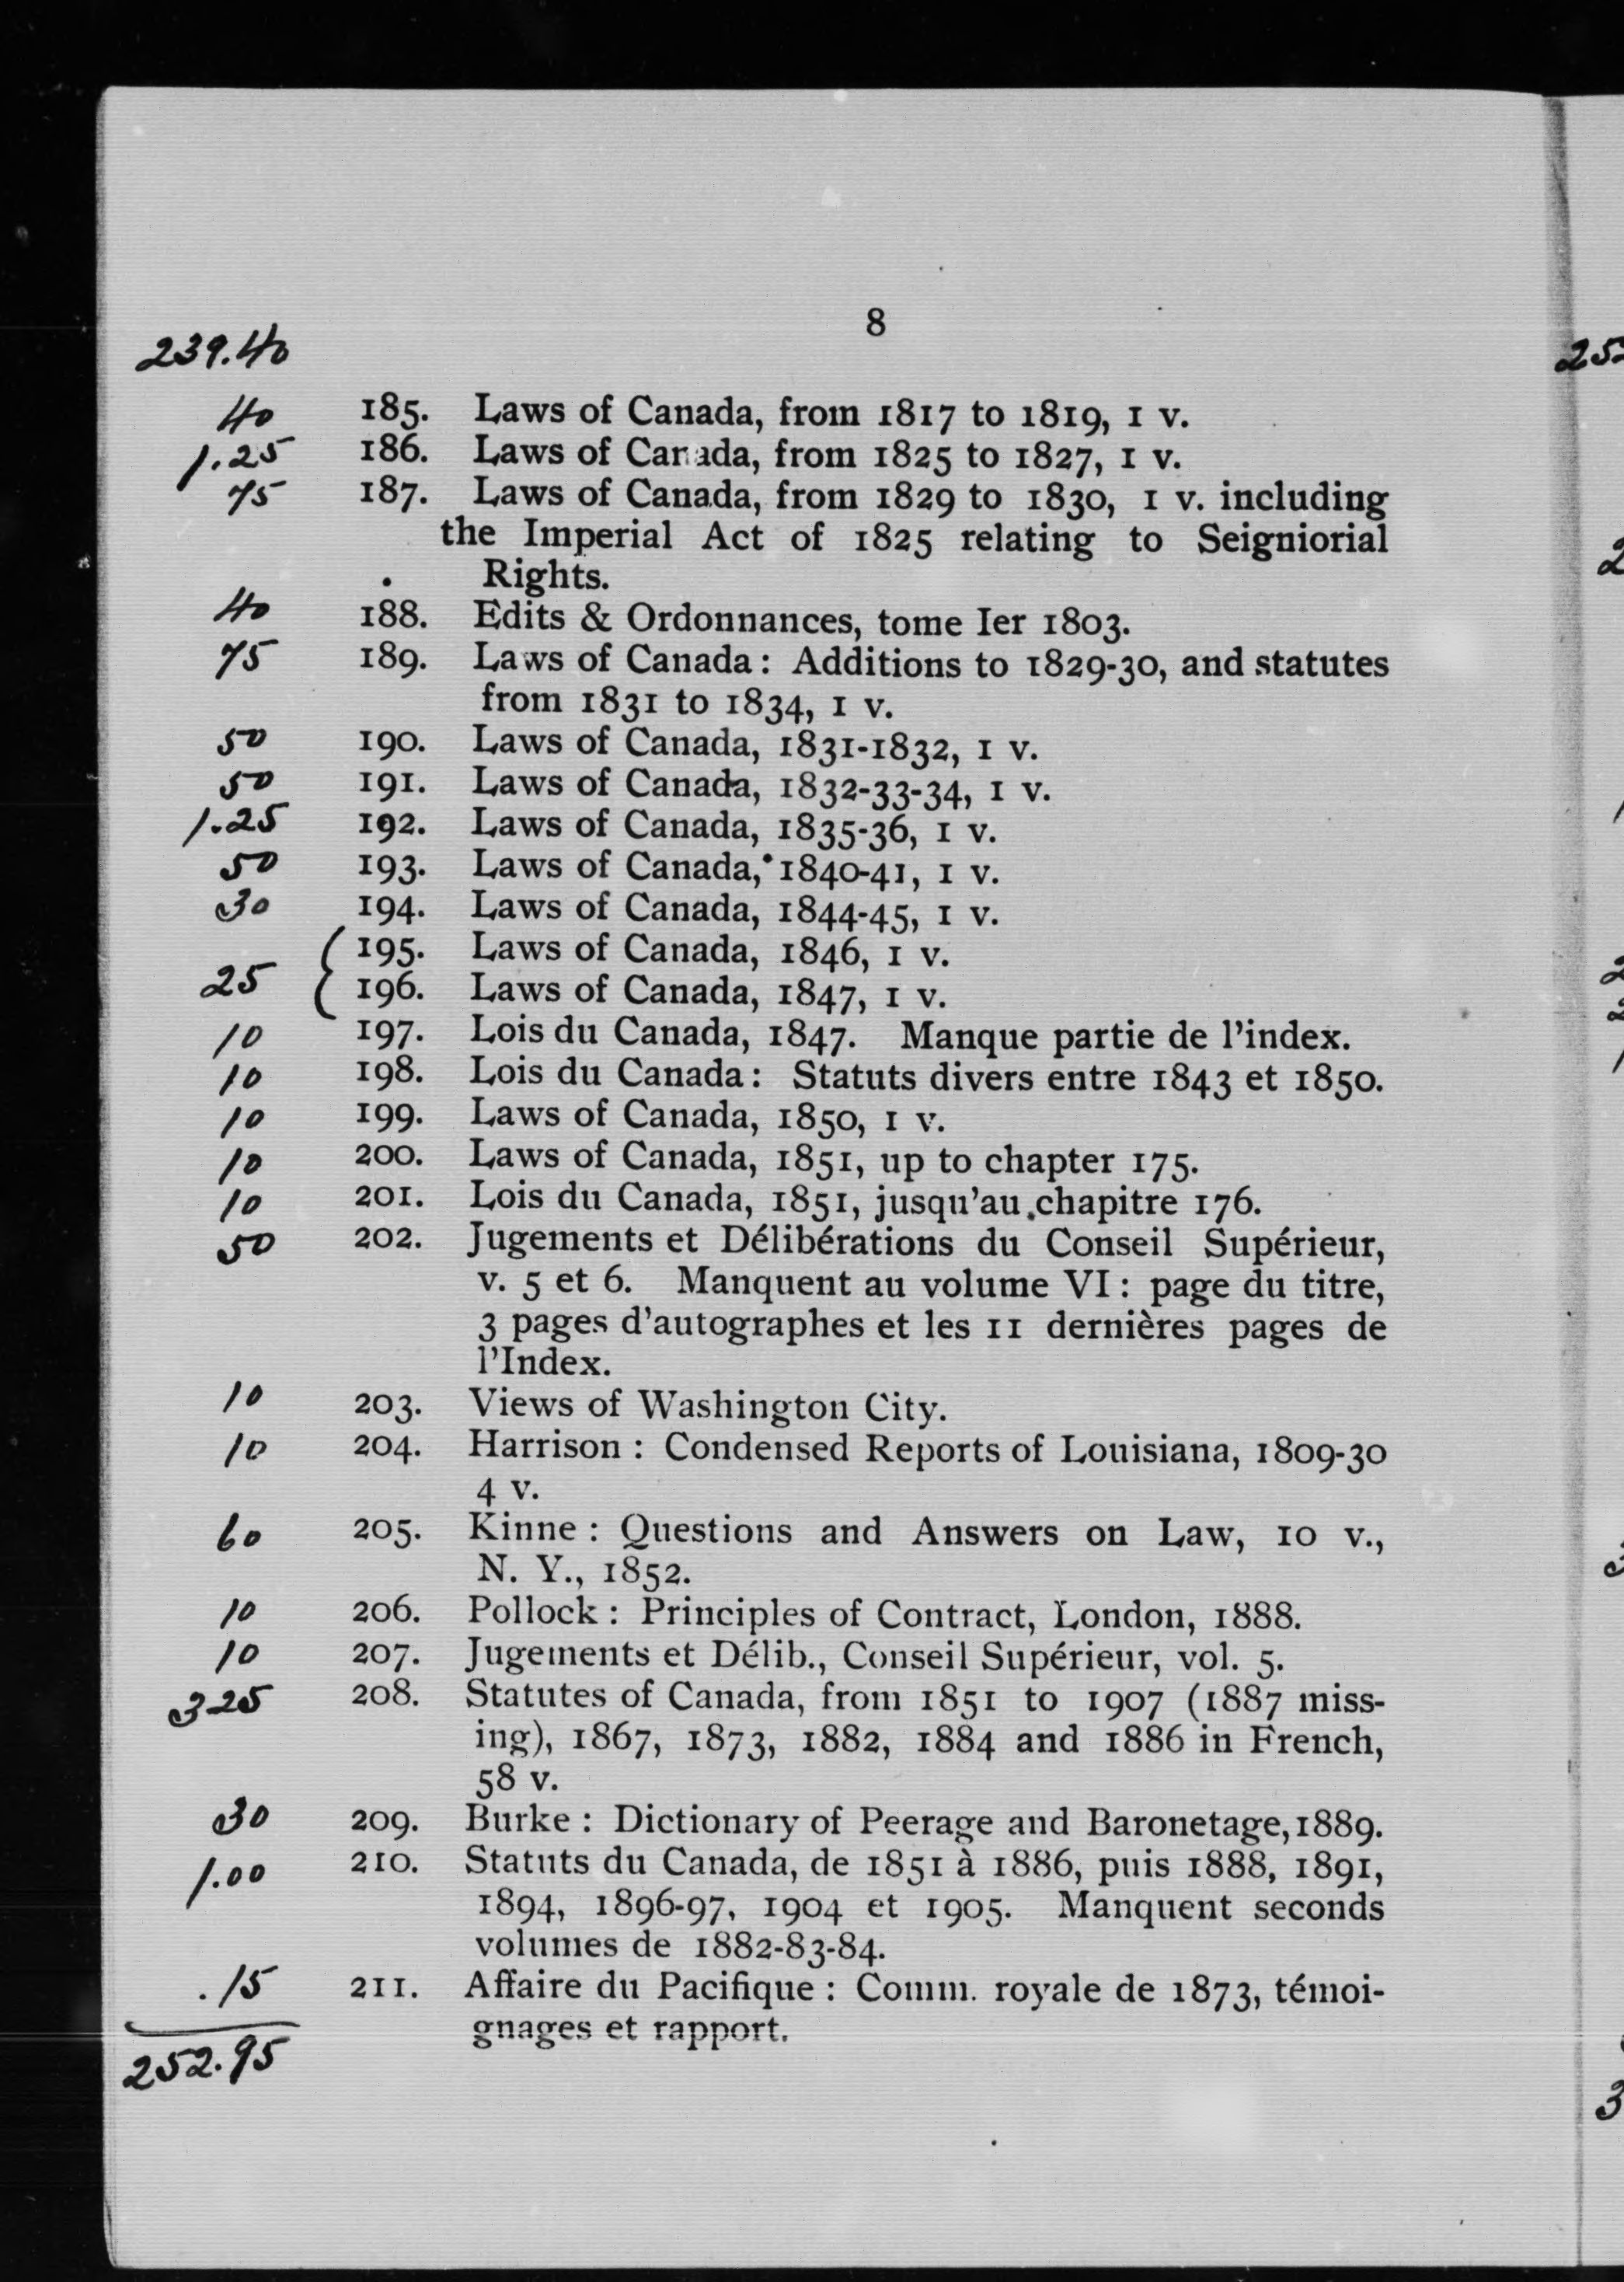 8
239.40
40 185. Laws of Canada, from 1817 to 1819, 1 v.
1.25 186. Laws of Canada, from 1825 to 1827, 1 v.
75 187. Laws of Canada, from 1829 to 1830, 1 v. including
the Imperial Act of 1825 relating to Seigniorial
Rights.
40 188. Edits & Ordonnances, tome Ier 1803.
75 189. Laws of Canada: Additions to 1829-30, and statutes
from 1831 to 1834, 1 v.
50 190. Laws of Canada, 1831-1832, 1 v.
50 191. Laws of Canada, 1832-33-34, 1 v.
1.25 192. Laws of Canada, 1835-36, 1 v.
50 193. Laws of Canada, 1840-41, 1 v.
30 194. Laws of Canada, 1844-45, 1 v.
195. Laws of Canada, 1846, 1 v.
25 { 196. Laws of Canada, 1847, 1 v.
10 197. Lois du Canada, 1847. Manque partie de l'index.
10 198. Lois du Canada: Statuts divers entre 1843 et 1850.
10 199. Laws of Canada, 1850, 1 v.
10 200. Laws of Canada, 1851, up to chapter 175.
10 201. Lois du Canada, 1851, jusqu'au chapitre 176.
50 202. Jugements et Délibérations du Conseil Supérieur,
v. 5 et 6. Manquent au volume VI: page du titre,
3 pages d'autographes et les 11 dernières pages de
l'Index.
10 203. Views of Washington City.
10 204. Harrison: Condensed Reports of Louisiana, 1809-30
4 v.
60 205. Kinne: Questions and Answers on Law, 10 v.,
N. Y., 1852.
10 206. Pollock: Principles of Contract, London, 1888.
10 207. Jugements et Délib., Conseil Supérieur, vol. 5.
325 208. Statutes of Canada, from 1851 to 1907 (1887 miss-
ing), 1867, 1873, 1882, 1884 and 1886 in French,
58 v.
30 209. Burke: Dictionary of Peerage and Baronetage, 1889.
1.00 210. Statuts du Canada, de 1851 à 1886, puis 1888, 1891,
1894, 1896-97, 1904 et 1905. Manquent seconds
volumes de 1882-83-84.
.15 211. Affaire du Pacifique: Comm. royale de 1873, témoi-
gnages et rapport.
252.95